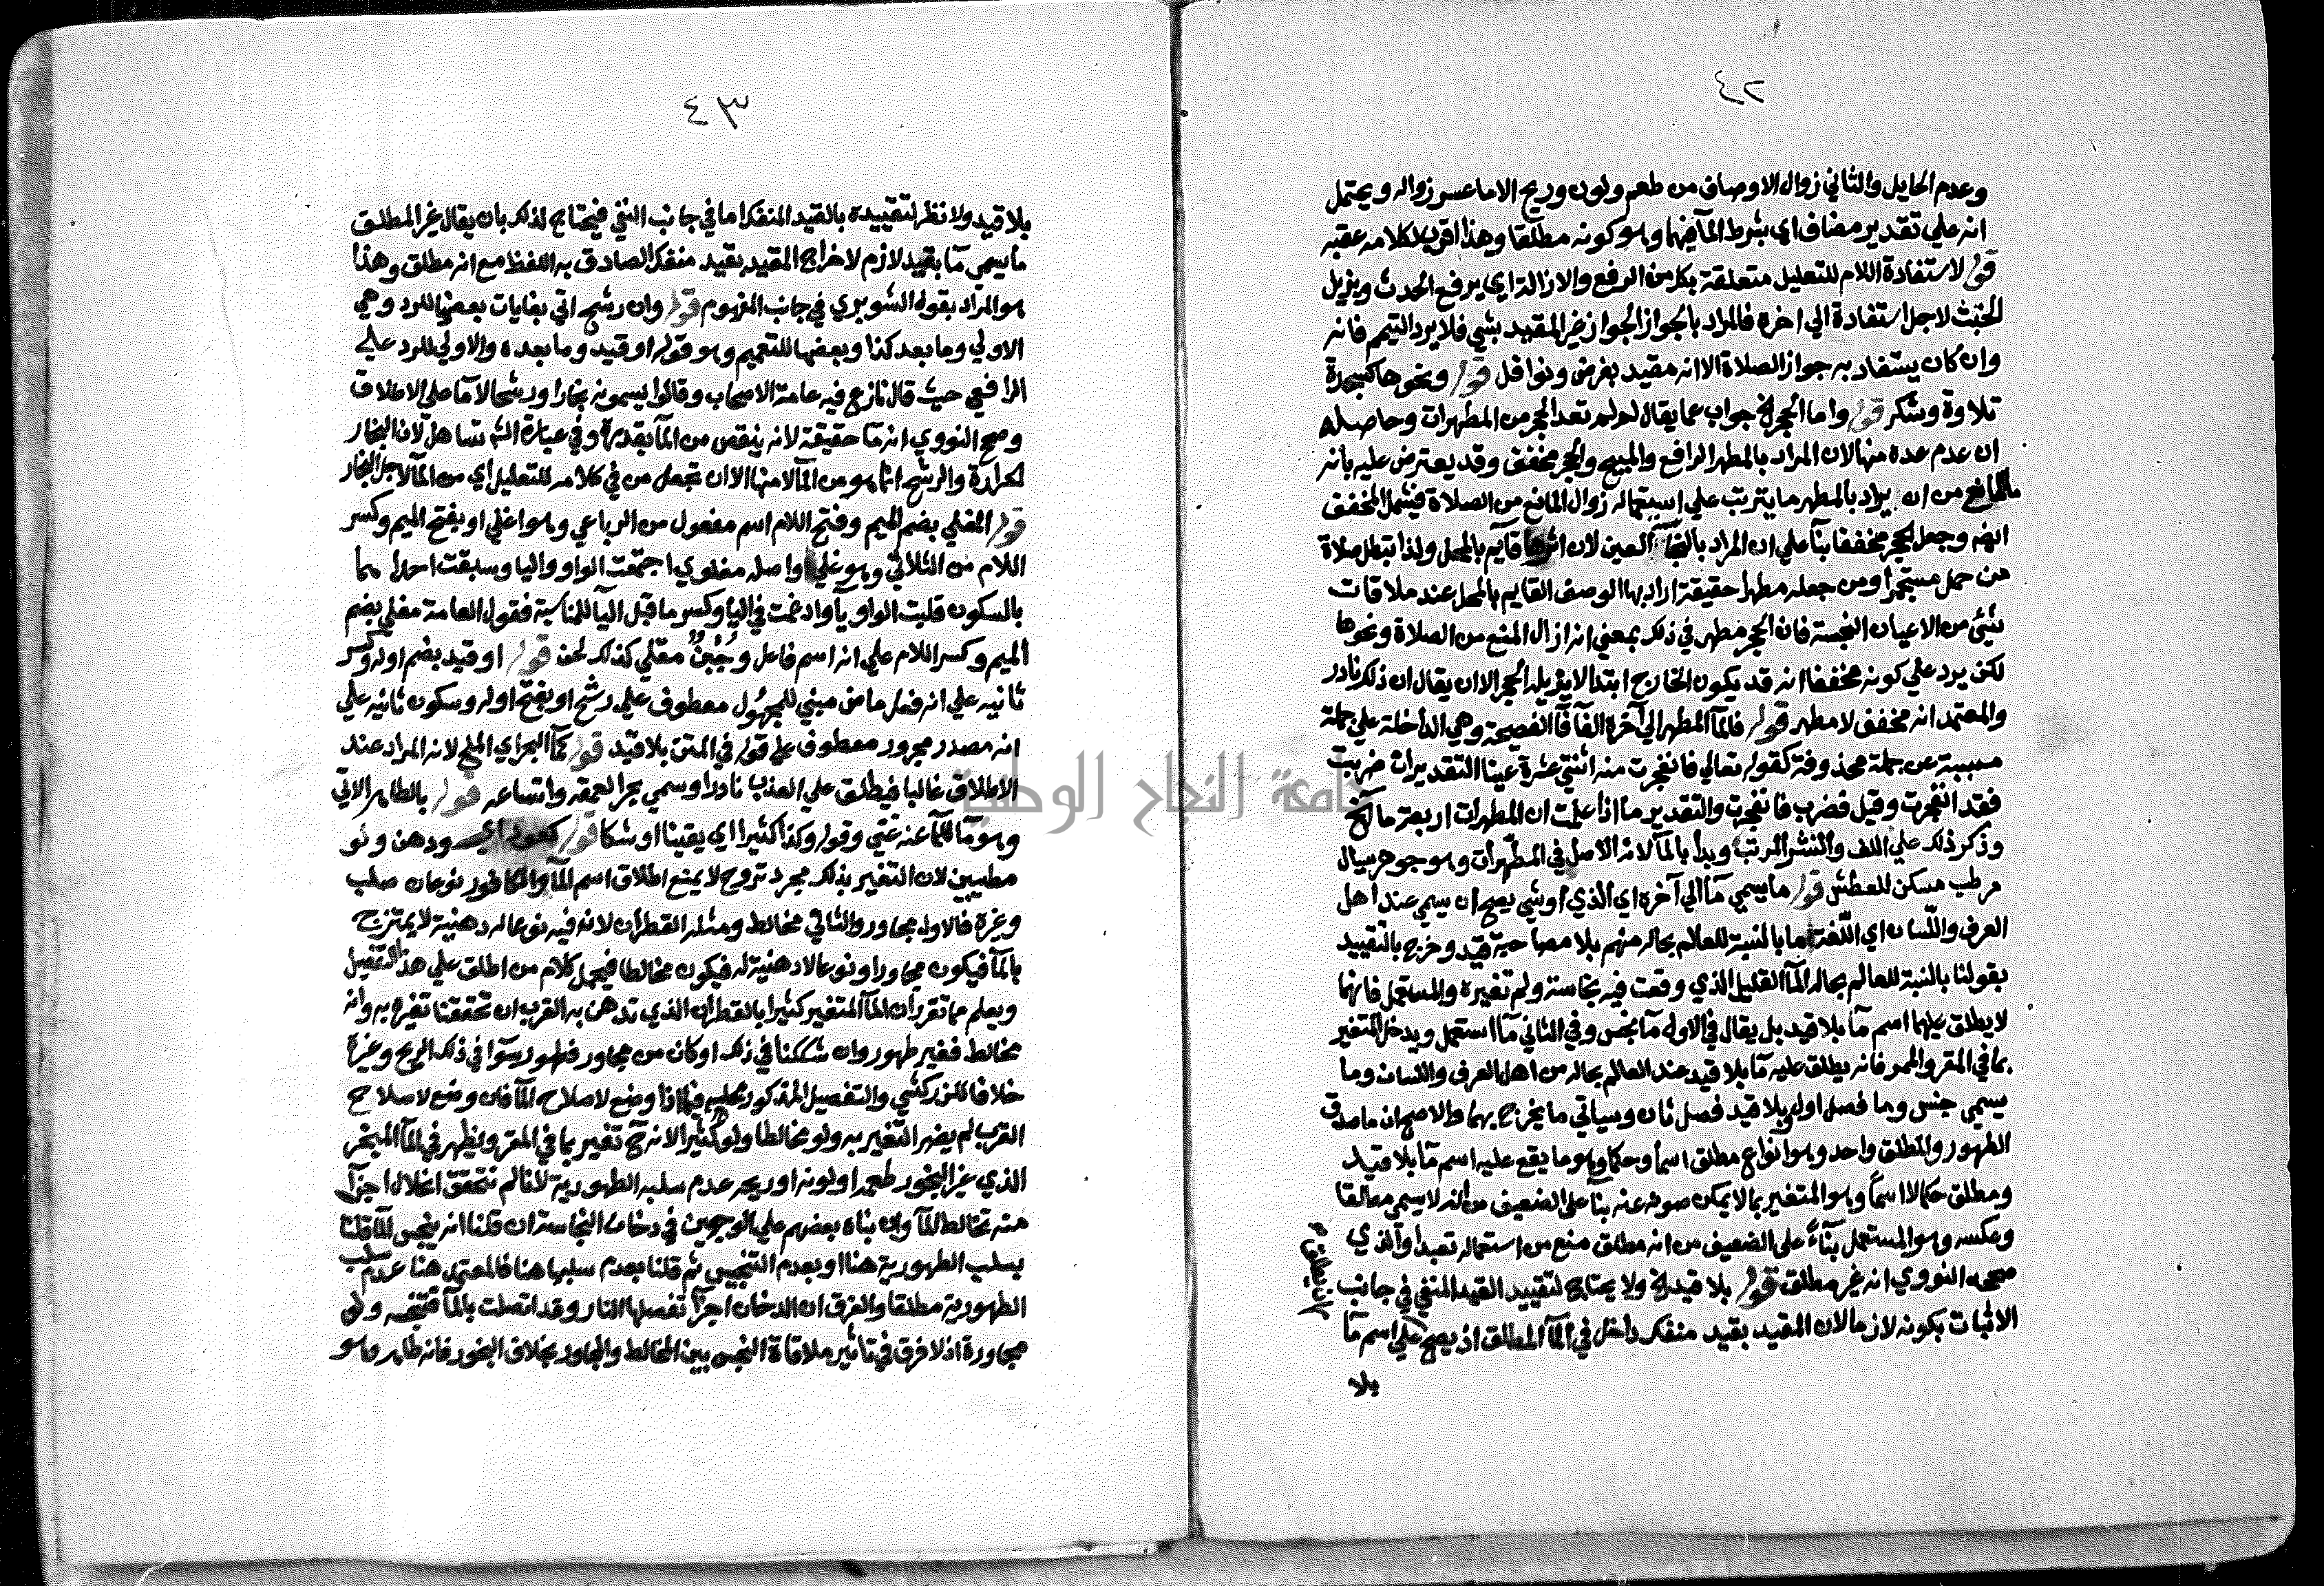 ٤٢
وعدم الحايل والثاني زوال الاوصاف من طعم ولون وريح الا ما عسر زواله ويحتمل
انه علي تقدير مضاف اي بشرط المآ فيهما وهو كونه مطلقا وهذا اقرب لكلامه عقبه
قوله لاستفادة اللام للتعليل متعلقة بكل من الرفع والازالة اي يرفع الحدث ويزيل
الخبث لاجل استفادة الي اخره فالمراد بالجواز الجواز غير المقيد بشي فلا يرد التيمم فانه
وان كان يستفاد به جواز الصلاة الا انه مقيد بفرض ونوافل قوله ونحوها كسجدة
تلاوة وشكر قوله واما الحجر الخ جواب عما يقال لم لم تعد الحجر من المطهرات وحاصله
ان عدم عده منها لان المراد بالمطهر الرافع والمبيح والحجر مخفف وقد يعترض عليه بانه
ما المانع من ان يراد بالمطهر ما يترتب علي استعماله زوال المانع من الصلاة فيشمل المخفف
انهم وجعل الحجر مخففا بنآ علي ان المراد العين لان اثرها قآيم بالمحل ولذا تبطل صلاة
من حمل مستجمرا ومن جعله مطهرا حقيقة اراد بها الوصف القايم بالمحل عند ملاقات
شئ من الاعيان النجسة فان الحجر مطهر في ذلك بمعني انه ازال المنع من الصلاة ونحوها
لكن يرد علي كونه مخففا انه قد يكون الخارج ابتدا لا يزيله الحجر الا ان يقال ان ذلك نادر
والمعتمد انه مخفف لا مطهر قوله فالمآ المطهر الي آخره الفآ فآ الفصيحة وهي الداخلة علي جملة
مسببة عن جملة محذوفة كقوله تعالي فانفجرت منه اثنتي عشرة عينا التقدير ان ضربت
فقد انفجرت وقيل فضرب فانفجرت والتقدير ما اذا علمت ان المطهرات اربعة ما الخ
وذكر ذلك علي اللف والنشر المرتب وبدأ بالمآ لانه الاصل في المطهرات وهو جوهر سيال
مرطب مسكن للعطش قوله ما يسمي مآ الي آخره اي الذي او شي يصح ان يسمي عند اهل
العرف واللسان اي اللغة ما بالنسبة للعالم بحاله منهم بلا مصاحبة قيد وخرج بالتقييد
بقولنا بالنسبة للعالم بحاله المآ القليل الذي وقعت فيه نجاسة ولم تغيره والمستعمل فانهما
لا يطلق عليهما اسم مآ بلا قيد بل يقال في الاول مآ نجس وفي الثاني مآ استعمل ويدخل المتغير
بما في المقر والممر فانه يطلق عليه مآ بلا قيد عند العالم بحاله من اهل العرف واللسان وما
يسمي جنس وما فصل اول وبلا قيد فصل ثان وسياتي ما يخرج بهما والاصح ان ما صدق
الطهور والمطلق واحد وهو انواع مطلق اسما وحكما وهو ما يقع عليه اسم مآ بلا قيد
ومطلق حكما لا اسماً وهو المتغير بما لا يمكن صونه عنه بنآ علي الضعيف من انه لا يسمي مطلقا
وعكسه وهو المستعمل بنآءً علي الضعيف من انه مطلق منع من استعماله تعبدا والذي
صححه النووي انه غير مطلق قوله بلا قيد الخ ولا يحتاج لتقييد القيد المنفي في جانب
الاثبات بكونه لازما لان المقيد بقيد منفك داخل في المآ المطلق اذ يصح علي اسم مآ
ان يطلق
بلا
٤٣
بلا قيد ولا نظر لتقييده بالقيد المنفك اما في جانب النفي فيحتاج لذلك بان يقال غير المطلق
ما يسمي مآ بقيد لازم لاخراج المقيد بقيد منفك الصادق به اللفظ مع انه مطلق وهذا
هو المراد بقوله الشوبري في جانب المفهوم قوله وان رشح اتي بغايات بعضها للرد وهي
الاولي وما بعد كذا وبعضها للتعميم وهو قوله او قيد وما بعده والاولي للرد علي
الرافعي حيث قال نازع فيه عامة الاصحاب وقالوا يسمونه بخارا ورشحا لا مآ علي الاطلاق
وصح النووي انه مآ حقيقة لانه ينقص من المآ بقدره وفي عبارة الش تساهل لان البخار
لحرارة والرشح انما هو من المآ لا منها الا ان تجعل من في كلامه للتعليل اي من المآ لاجل البخار
قوله المغلي بضم الميم وفتح اللام اسم مفعول من الرباعي وهو اغلي او بفتح الميم وكسر
اللام من الثلاثي وهو غلي واصله مغلوي اجتمعت الواو واليا وسبقت احداهما
بالسكون قلبت الواو يآ وادغمت في اليآ وكسر ما قبل اليآ للمناسبة فقول العامة مغلي بضم
الميم وكسر اللام علي انه اسم فاعل وجُبْنٌ مقلي كذلك لحن قوله او قيد بضم اوله وكسر
ثانيه علي انه فعل ماض مبني للمجهول معطوف علي رشح او بفتح اوله وسكون ثانيه علي
انه مصدر مجرور معطوف علي قوله في المتن بلا قيد قوله كمآ البحر اي الملح لانه المراد عند
الاطلاق غالبا فيطلق علي العذب نادرا وسمي بحر العمقه واتساعه قوله بالطاهر الاتي
وهو مآ للمآ عنه غني وقوله وكذا كثيرا اي يقينا او شكا قوله كعود اي ودهن ولو
مطيبين لان التغير بذلك مجرد تروح لا يمنع اطلاق اسم المآ والكافور نوعان صلب
وغيره فالاول مجاور والثاني مخالط ومثله القطران لانه فيه نوعا له دهنية لا يمتزج
بالمآ فيكون مجاورا ونوعا لا دهنية له فيكون مخالطا فيحمل كلام من اطلق علي هذا التفصيل
ويعلم مما تقرر ان المآ المتغير كثيرا بالقطران الذي تدهن به القرب ان تحققنا تغيره به وانه
مخالط فغير طهور وان شككنا في ذلك او كان من مجاور فطهور سوآ في ذلك الريح وغيره
خلافا للزركشي والتفصيل المذكور محله فيما اذا وضع لا صلاح المآ فان وضع لاصلاح
القرب لم يضر التغير به ولو مخالطا ولو كثيرا لانه ح تغير بما في المقر ويظهر في المآ المبخر
الذي غير البخور طعمه او لونه او ريحه عدم سلبه الطهورية لانا لم نتحقق انحلال اجزآ
منه تخالط المآ وان بناه بعضهم علي الوجهين في دخان النجاسة ان قلنا انه ينجس المآ قلنا
يسلب الطهورية هنا او بعدم التنجيس ثم قلنا بعدم سلبها هنا فالمعتمد هنا عدم سلب
الطهورية مطلقا والفرق ان الدخان اجزآ تفصلها النار وقد اتصلت بالمآ فتنجسه ولو
مجاورة اذ لا فرق في تاثير ملاقاة النجس بين المخالط والمجاور بخلاف البخور فانه طاهر وهو
جامعة النجاح الوطنية